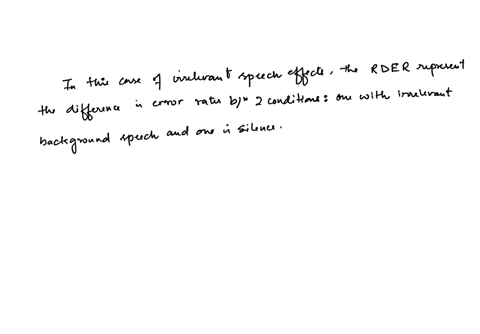 In this case of irrelevant speech effects, the RDER represent
the difference in error rates b/n 2 conditions: one with irrelevant
background speech and one in silence.